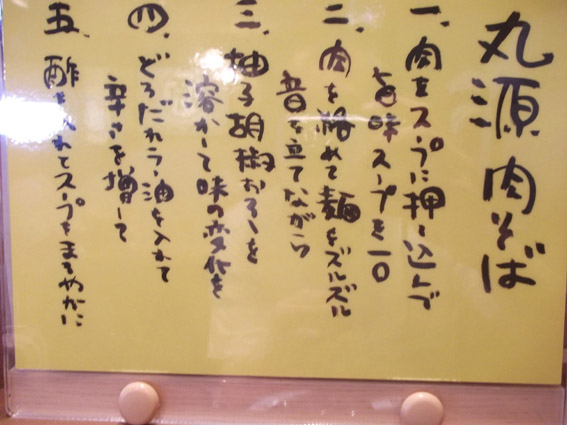 丸源肉そば
一、肉をスープに押し込んで
旨味スープを一口
二、肉を絡めて麺をズルズル
音を立てながら
三、柚子胡椒おろしを
溶かして味の変化を
四、どろだれラー油を入れて
辛さを増して
五、酢を入れてスープをまろやかに